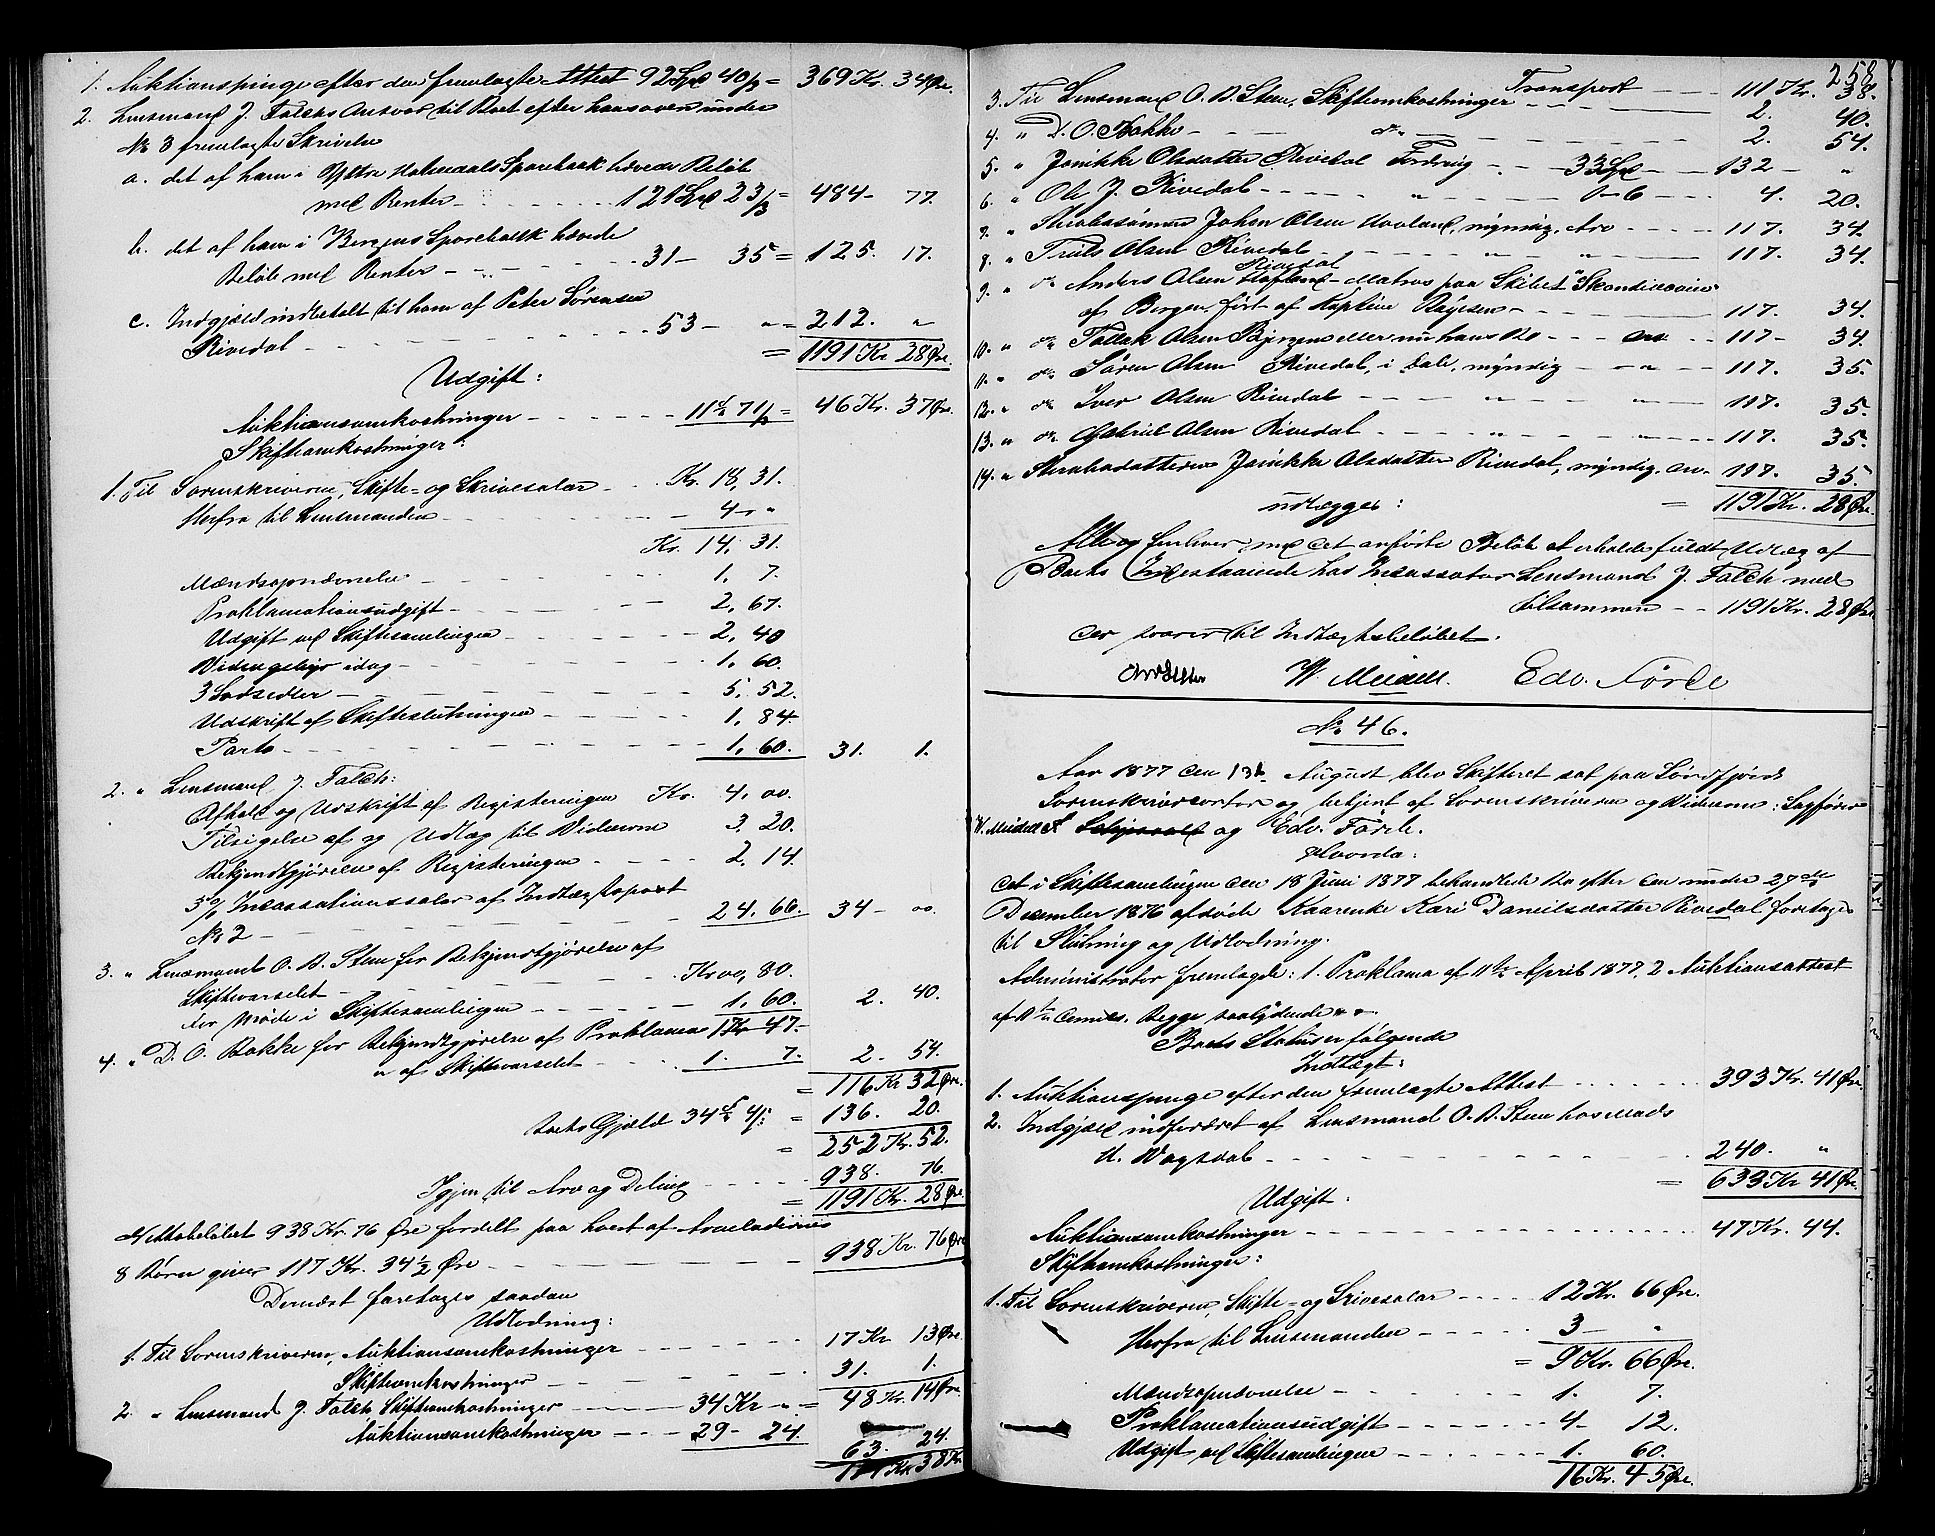 1. Auktionspenge efter den fremlagte Attest 92 Spd 40 β = 369 Kr. 34 Øre.
2. Lensmand J. Falchs Ansvar til Boet efter hans oven under
No 3 fremlagte Skrivelse
a. det af ham i Ytre Holmedals Sparebank hævede Beløb
med Renter - - - - 121 Spd 23 β = 484 - 77.
b. det af ham i Bergens Sparebank hævede
Beløb med Renter - - - - 31 - 35 = 125. 17.
c. Indgjæld indbetalt til ham af Peter Sørensen
Rivedal - - - - 53 - " = 212. "
= 1191 Kr 28 Øre.
Udgift:
Auktionsomkostninger - - - - 11 71 β = 46 Kr. 37 Øre.
Skifteomkostninger:
1. Til Sorenskriveren, Skifte- og Skrivesalær - - Kr. 18, 31.
Herfra til Lensmanden - - - - 4 - "
Kr. 14, 31.
Mændsopnævnelse - - - - 1, 7.
Proklamationsudgift - - - - 2, 67.
Udgift ved Skiftesamlingen - - - - 2, 40
Vidnegebyr idag - - - - 1, 60.
3 Lodsedler - - - - 5, 52.
Udskrift af Skifteslutningen - - - - 1, 84.
Porto - - - - 1, 60. 31. 1.
2. " Lensmand J. Falch:
Afhold og Udskrift af Registeringen Kr. 4, 00.
Tilsigelse af og Udlæg til Vidnerne 3. 20.
Bekjendtgjørelse af Registeringen - - - - 2, 14.
3 % Incassationssalær af Indtægtspost
No 2 - - - - 24, 66. 34 - 00.
3. " Lensmand O. A. Steen for Bekjendtgjørelse af
Skiftevarselet - - - - Kr 00, 80.
for Møde i Skiftesamlingen - - - - 1, 60. 2. 40.
4. " D. O. Bakke for Bekjendtgjørelse af Proklama 1 Kr 47.-
" af Skiftevarselet - - - - 1. 7. 2 - 54.
= 116 Kr 32 Øre.
Boets Gjæld 34 = 136. 20.
= 252 Kr. 52.
Igjen til Arv og Deling - - - - 938. 76.
= 1191 Kr. 28 Øre.
Nettobeløbet 938 Kr. 76 Øre fordelt paa hvert af Arveladernes
8 Børn giver 117 Kr. 34 ½ Øre - - - - 938 Kr. 76 Øre
Dernæst foretages saadan
Udlodning:
1. Til Sorenskriveren, Auktionsomkostninger - - - - 17 Kr 13 Øre.
Skifteomkostninger - - - - 31. 1.
2. " Lensmand J. Falch Skifteomkostninger - - 34 Kr " = 48 Kr. 14 Øre.
Auktionsomkostninger - - - 29 - 24. 63. 24.
111 Kr 38
258.
Transport - - - 111 Kr. 38.
3. Til Lensmand O. A. Steen, Skifteomkostninger - - - - 2. 40.
4. " D. O. Bakke - - - - do - - 2. 54.
5. " Janikke Olsdatter Rivedal Fordring - - 33 Spd - 132 - "
6. " Ole J. Rivedal - - - - " - - 1 - 6 - - 4. 20.
7. " Sterbosønnen Johan Olsen Hovland, myndig, Arv - - - - 117. 34.
8. " Truls Olsen Rivedal - - " - " - - 117. 34.
9. " do Anders Olsen Rivedal - Matros paa Skibet "Skandinavien"
af Bergen ført af Kaptein - - - - 117. 34.
10. " do Tollak Olsen Bjergene eller nu hans Bo - - - Arv - - 117 - 34.
11. " do Søren Olsen Rivedal, i Dale, myndig - - " - - 117. 35.
12. " do Iver Olsen Rivedal - - - - " - " - 117. 35.
13. " do Gabriel Olsen Rivedal - - - " - " - 117. 35.
14. " Sterbodatteren Janikke Olsdatter Rivedal, myndig, Arv - 117. 35.
udlægges: = 1191 Kr. 28 Øre.
Alle og Enhver med det anførte Beløb at erholde fuldt Udlæg af
Boets Indestaaende hos Incassator Lensmand J. Falch med
tilsammen - - 1191 Kr. 28 Øre
der svarer til Indtægtsbeløbet.
W. Meidell. Edv. Førde
No 46.
Aar 1877 den 13de August blev Skifteret sat paa Søndfjords
Sorenskriverkontor og betjent af Sorenskriveren og Vidnerne: Sagfører
W. Meidell og Edv. Førde.
Hvorda:
det i Skiftesamlingen den 18 Juni 1877 behandlede Bo efter den under 27de
December 1876 afdøde Kaarenke Kari Danielsdatter Rivedal foretages
til Slutning og Udlodning.
Administrator fremlagde: 1. Proklama af 11te April 1877. 2 Auktionsattest
af Begge saalydende " "
Boets Status er følgende
Indtægt:
1. Auktionspenge efter den fremlagte Attest - - - - 393 Kr. 41 Øre.
2. Indgjæld indfordret af Lensmand O. A. Steen hos Mads
M. Vagsdal - - - - 240. "
= 633 Kr 41 Øre.
Udgift:
Auktionsomkostninger - - - - 47 Kr. 44.
Skifteomkostninger:
1. Til Sorenskriveren, Skifte- og Skrivesalær - - - - 12 Kr. 66 Øre.
Herfra til Lensmanden - - - - 3 - "
= 9 Kr. 66 Øre.
Mændsopnævnelse - - - - 1. 7.
Proklamationsudgift - - - - 4 - 12.
Udgift ved Skiftesamlingen - - - - 1. 60.
16 Kr. 45 Øre.